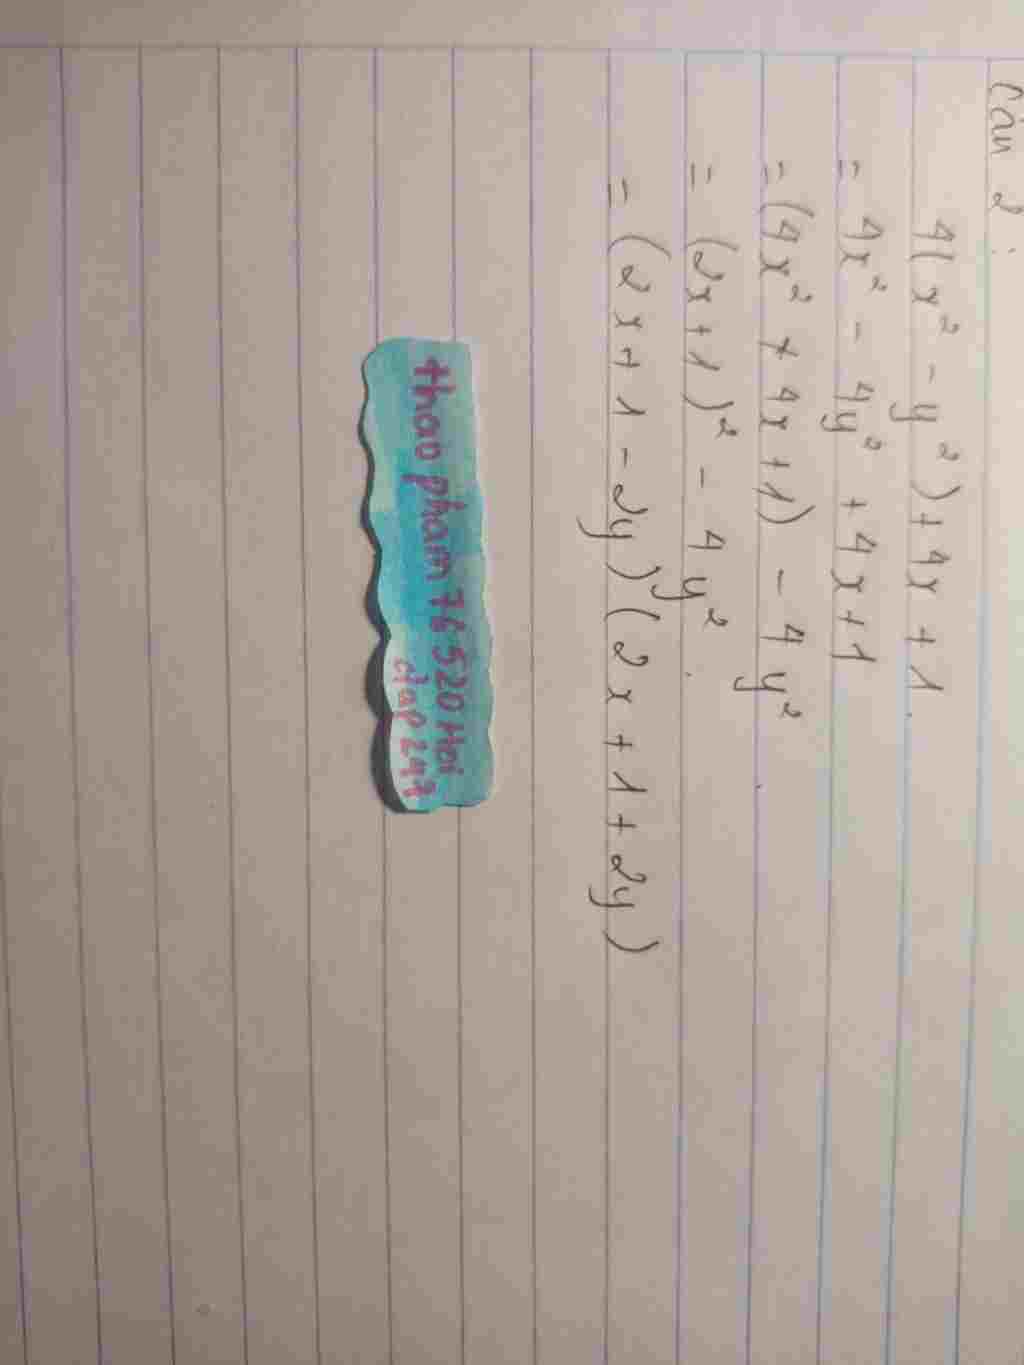 Câu 2:
4(x² - y²) + 4x + 1.
= 4x² - 4y² + 4x + 1
= (4x² + 4x + 1) - 4y²
= (2x + 1)² - 4y².
= (2x + 1 - 2y)(2x + 1 + 2y)
thao pham 76 520 Hoi
dap 247